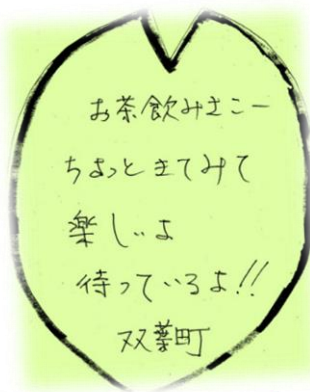 お茶飲みさこー
ちょっときてみて
楽しいよ
待っているよ!!
双葉町